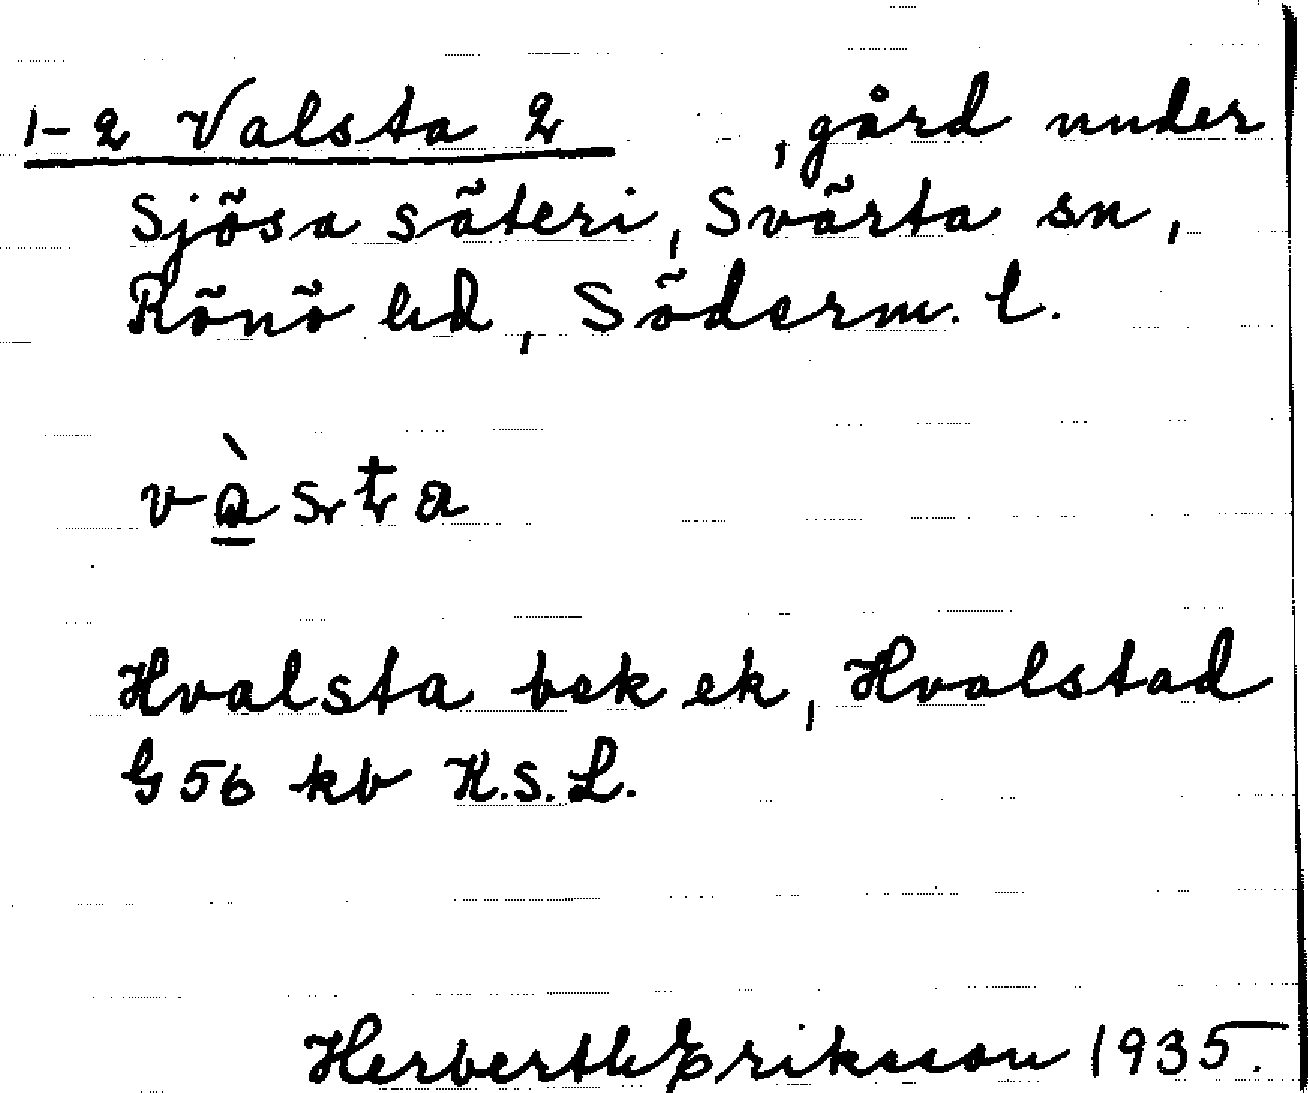 1-2 Valsta 2 , gård under
Sjösa säteri, Svärta sn,
Rönö hd, Söderm. l.
Hvalsta bek ek, Hvalstad
G 56 kb K.S.L.
Herberth Eriksson 1935.